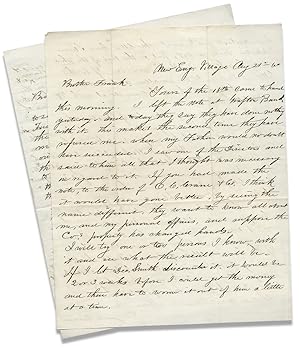 New Eng. Village Aug 21st 60
Brother Frank
Yours of the 18th came to hand
this morning I left the note at Grafton Bank
yesterday and today they say they have done nothing
with it this makes the second time they have
refused me, when my Father would no doubt
have succeeded. I saw one of the Trustees and
said to him all that I thought was necessary
in regard to it. If you had made the
note to the order of C. C. & Co. I think
it would have gone better, by seeing the
name different, they want to know all about
me, and my personal affairs, and suppose the
property has changed hands.
I will try one or two persons I know, with
it and see what the result will be.
If I let Smith Discounts it, it would be
2 or 3 weeks before I could get the money
and then have to worm it out of him a little
at a time.